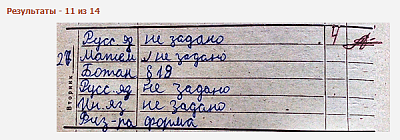 Результаты - 11 из 14
Русс яз не задано 4
27 Матем не задано
Ботан § 19
Русс.яз не задано
Ин.яз. не задано
Физ-ра форма
Вторник